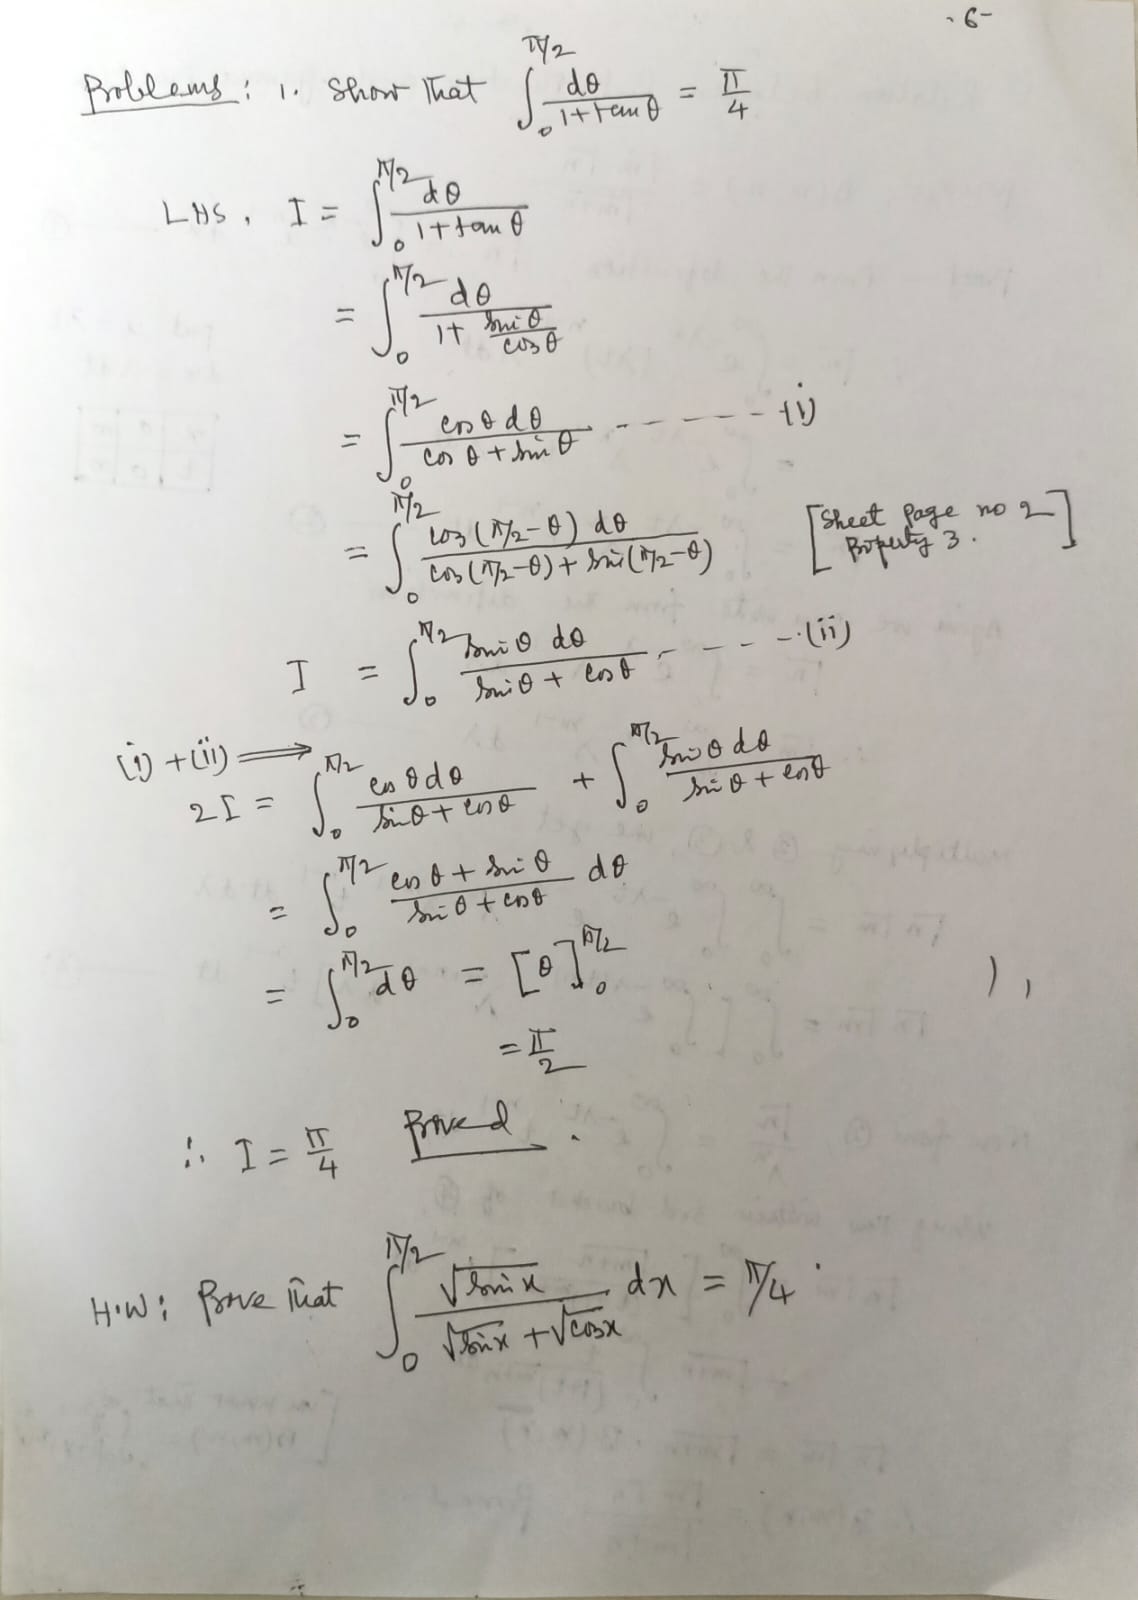 -6-
Problems: 1. Show that ∫₀^{π/2} dθ/(1+tanθ) = π/4
LHS, I = ∫₀^{π/2} dθ/(1+tanθ)
= ∫₀^{π/2} dθ/(1+ sinθ/cosθ)
= ∫₀^{π/2} cosθ dθ/(cosθ + sinθ) ------- (i)
= ∫₀^{π/2} cos(π/2-θ) dθ/(cos(π/2-θ) + sin(π/2-θ)) [Sheet page no 2
Property 3.]
I = ∫₀^{π/2} sinθ dθ/(sinθ + cosθ) ----- (ii)
(i) + (ii) ⟹
2I = ∫₀^{π/2} cosθ dθ/(sinθ + cosθ) + ∫₀^{π/2} sinθ dθ/(sinθ + cosθ)
= ∫₀^{π/2} (cosθ + sinθ)/(sinθ + cosθ) dθ
= ∫₀^{π/2} dθ = [θ]₀^{π/2}
= π/2
∴ I = π/4 Proved.
H.W: Prove that ∫₀^{π/2} √sinx/(√sinx + √cosx) dx = π/4.